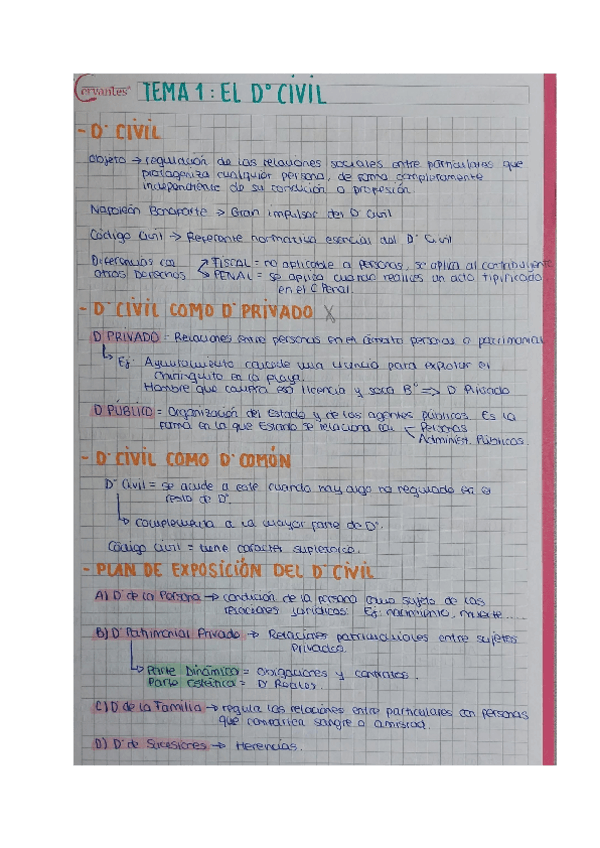 Cervantes
TEMA 1: EL Dº CIVIL
- Dº CIVIL
Objeto → regulación de las relaciones sociales entre particulares que
protagoniza cualquier persona, de forma completamente
independiente de su condición o profesión
Napoleón Bonaparte → Gran impulsor del Dº Civil
Código Civil → Referente normativo esencial del Dº Civil
Diferencias con → FISCAL = no aplicable a personas, se aplica al contribuyente
otros Derechos → PENAL = se aplica cuando realices un acto tipificado
en el C Penal.
- Dº CIVIL COMO Dº PRIVADO X
Dº PRIVADO = Relaciones entre personas en el ámbito personas o patrimonial
↳ Ej: Ayuntamiento concede una licencia para explotar el
chiringuito en la playa.
Hombre que compra esa licencia y saca Bº => Dº Privado
Dº PÚBLICO = Organización del Estado y de los agentes públicos. Es la
forma en la que Estado se relaciona con - Personas
- Administ. Públicas.
- Dº CIVIL COMO Dº COMÚN
Dº Civil = se acude a este cuando hay algo no regulado en el
resto de Dº.
↳ complementa a la mayor parte de Dº.
Código Civil = tiene carácter supletorio.
- PLAN DE EXPOSICIÓN DEL Dº CIVIL
A) Dº de la Persona → condición de la persona como sujeto de las
relaciones jurídicas. Ej: nacimiento, muerte.....
B) Dº Patrimonial Privado → Relaciones patrimoniales entre sujetos
privados.
↳ Parte Dinámica = Obligaciones y contratos.
Parte Estática = Dº Reales.
C) Dº de la Familia → regula las relaciones entre particulares con personas
que comparten sangre o amistad.
D) Dº de Sucesiones → Herencias.